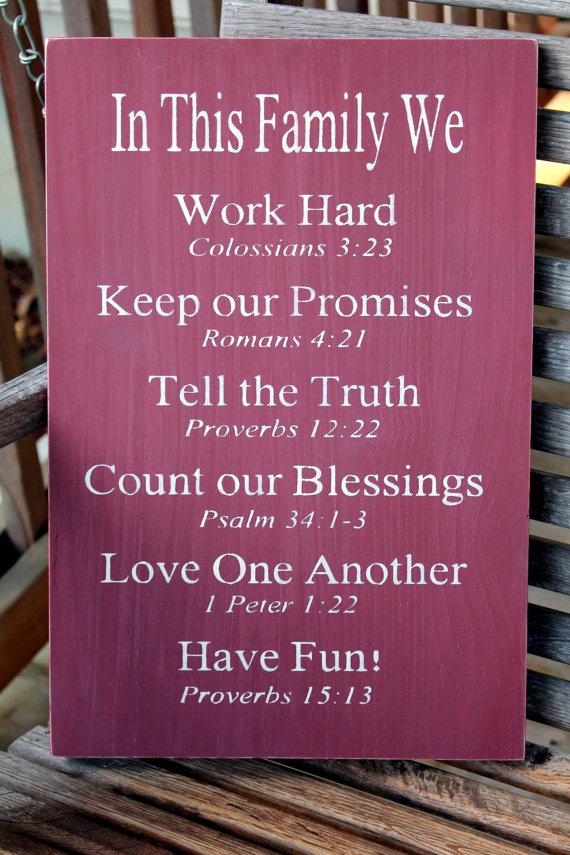 In This Family We
Work Hard
Colossians 3:23
Keep our Promises
Romans 4:21
Tell the Truth
Proverbs 12:22
Count our Blessings
Psalm 34:1-3
Love One Another
1 Peter 1:22
Have Fun!
Proverbs 15:13